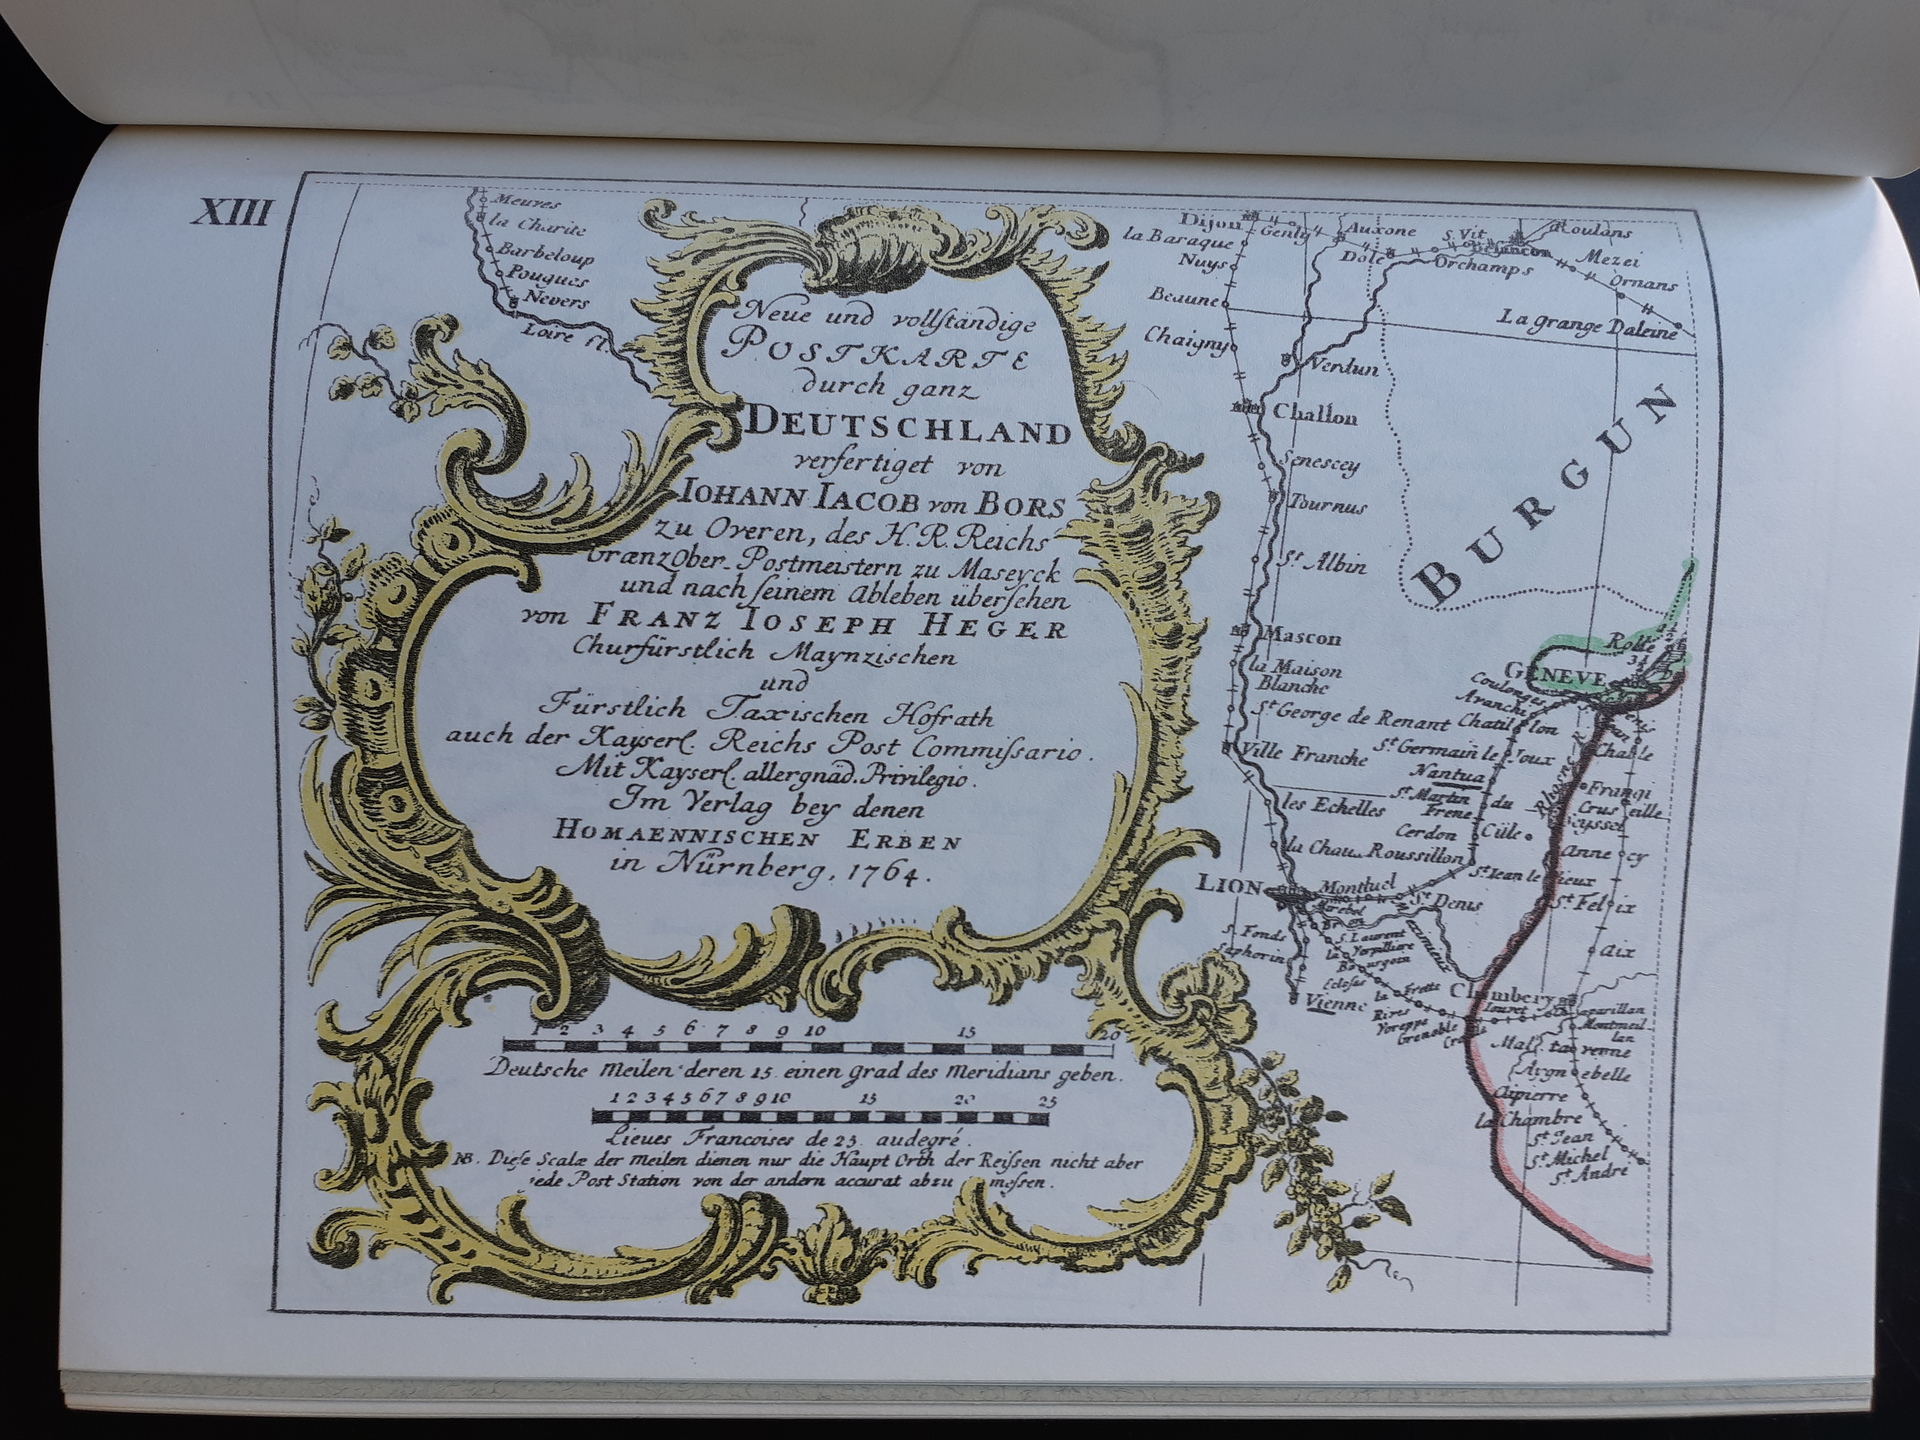 XIII
Meures
la Charite
Barbeloup
Pougues
Nevers
Loire fl.
Neue und vollständige
POSTKARTE
durch ganz
DEUTSCHLAND
verfertiget von
IOHANN IACOB von BORS
zu Overen, des H. R. Reichs
Grænz Ober-Postmeistern zu Maseyck
und nach seinem Ableben übersehen
von FRANZ IOSEPH HEGER
Churfürstlich Maynzischen
und
Fürstlich Taxischen Hofrath
auch der Kayserl. Reichs Post Commissario.
Mit Kayserl. allergnäd. Privilegio.
Im Verlag bey denen
HOMAENNISCHEN ERBEN
in Nürnberg, 1764.
1 2 3 4 5 6 7 8 9 10 15 20
Deutsche Meilen deren 15 einen Grad des Meridians geben.
1 2 3 4 5 6 7 8 9 10 15 20 25
Lieues Francoises de 25 au degré.
NB. Diese Scalæ der Meilen dienen nur die Haupt Orth der Reissen nicht aber
iede Post Station von der andern accurat abzu messen.
Dijon
Genly
Auxone
S. Vit
Besancon
Roulans
la Baraque
Dole
Orchamps
Mezei
Nuys
Ornans
Beaune
La grange Daleine
Chaigny
Verdun
Challon
BURGUN
Senescey
Tournus
St Albin
Mascon
Rolle
la Maison
Blanche
GENEVE
Coulonges
Avanchi
St George de Renant
Chatillon
Ville Franche
St Germain le Joux
Chable
Nantua
Rhone
Frangi
les Echelles
St Martin du
Frene
Cruseille
Seyssel
Cerdon
Cüle
la Chau
Roussillon
Annecy
St Jean le Vieux
LION
Montluel
St Denis
St Felix
Mirebel
Bron
S. Fonds
S. Laurent
Saphorin
la Verpilliere
Bourgoin
Aix
Ecloses
la Frette
Chambery
Vienne
Rives
Louret
Voreppe
Grenoble
Montmeillan
Mal taverne
Aygnebelle
la Chambre
St Jean
St Michel
St André